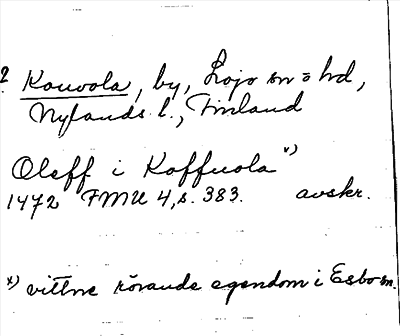 ? Kouvola, by, Lojo sn o hd,
Nylands l., Finland
Oleff i Koffuola x)
1472 FMU 4, s. 383. avskr.
x) vittne rörande egendom i Esbo sn.